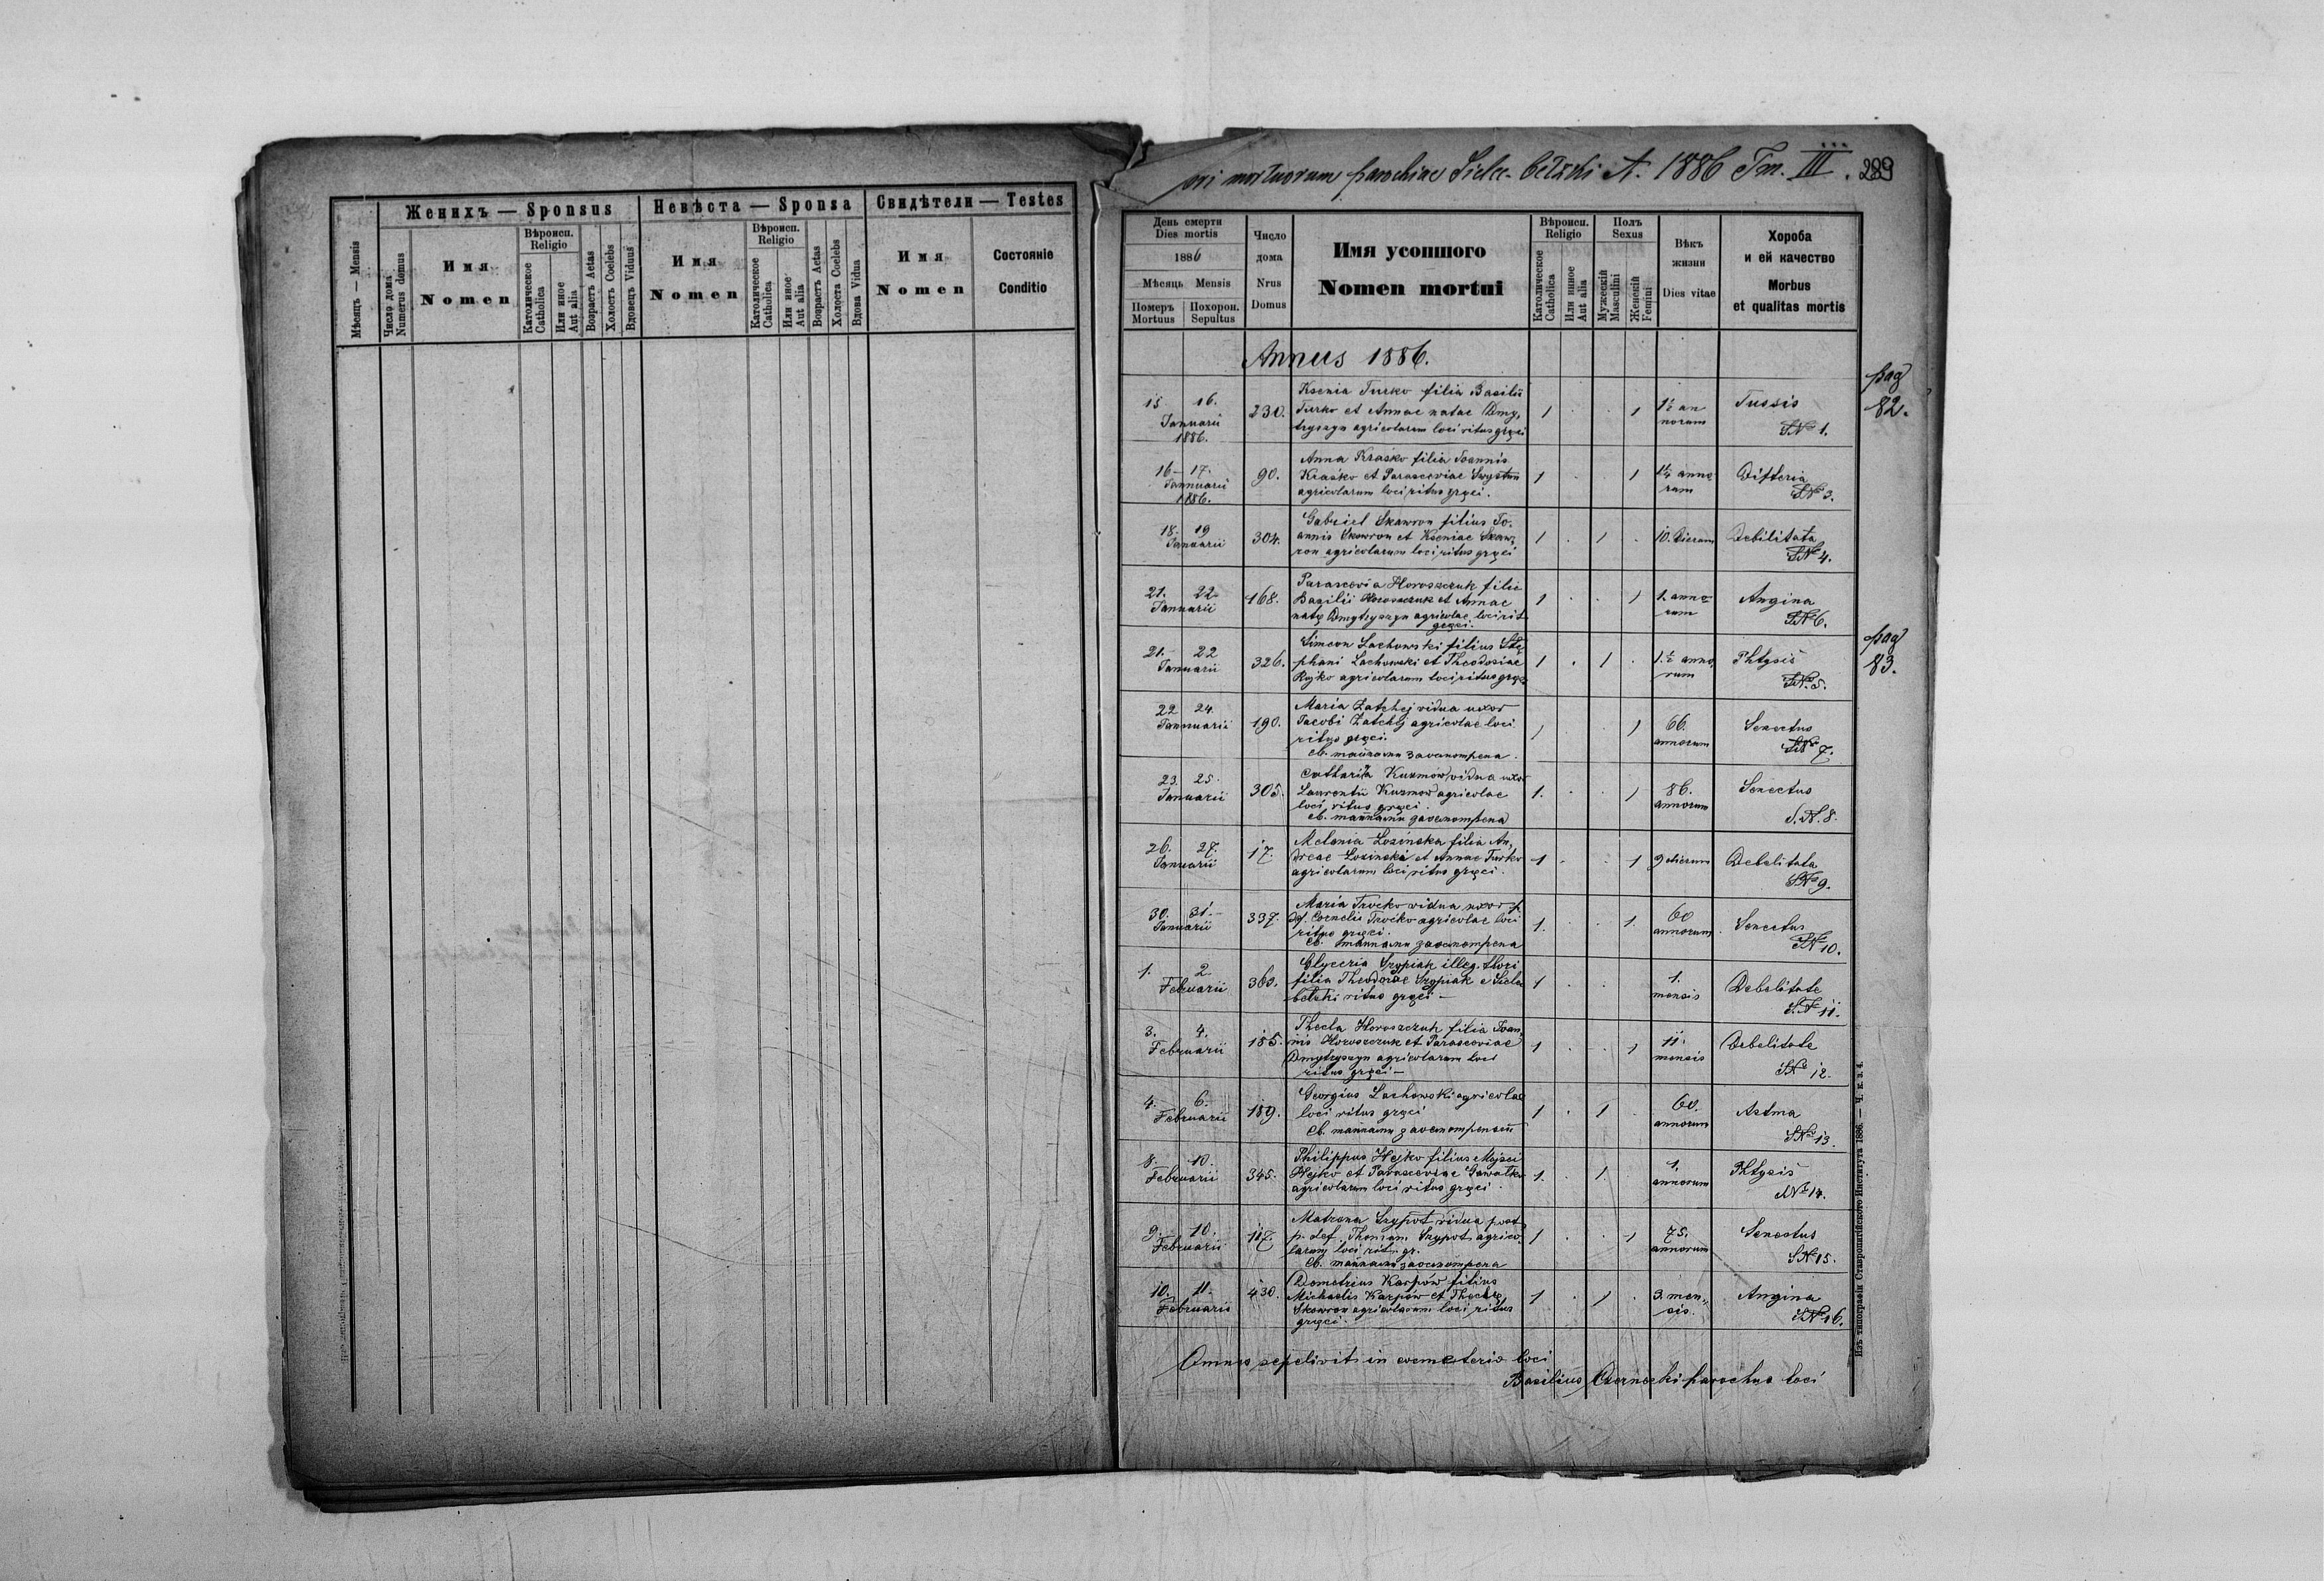 Мѣсяцъ — Mensis
Женихъ — Sponsus
Невѣста — Sponsa
Свидѣтели — Testes
Число дома
Numerus domus
Имя
Nomen
Вѣроисп.
Religio
Католическое
Catholica
Или иное
Aut alia
Возрастъ Aetas
Холостъ Coelebs
Вдовецъ Viduus
Имя
Nomen
Вѣроисп.
Religio
Католическое
Catholica
Или иное
Aut alia
Возрастъ Aetas
Холоста Coelebs
Вдова Vidua
Имя
Nomen
Состояніе
Conditio
ori mortuorum parochiae Sielec-bełzki A. 1886 Tm. III. 289
День смерти
Dies mortis
1886
Мѣсяць Mensis
Померъ
Mortuus
Похорон.
Sepultus
Число
дома
Nrus
Domus
Имя усопшого
Nomen mortui
Вѣроисп.
Religio
Католическое
Catholica
Или инное
Aut alia
Полъ
Sexus
Мужескій
Masculini
Женскій
Femini
Вѣкъ
жизни
Dies vitae
Хороба
и ей качество
Morbus
et qualitas mortis
Annus 1886.
pag
82.
15 16.
Januarii
1886.
230.
Ksenia Turko filia Basilii
Turko et Annae natae Dmy,
tryszyn agricolarum loci ritus gręci
1 . . 1
1½ an
norum
Tussis
SN 1.
16 – 17.
Jannuarii
1886.
90.
Anna Kraśko filia Joannis
Kraśko et Parasceviae Swystun
agricolarum loci ritus gręci.
1 . 1
1¼ anno
rum
Difteria
SN 3.
18. 19
Januarii
304.
Gabriel Skawron filius Jo.
annis Skowron et Kseniae Skaw,
ron agricolarum loci ritus gręci
1 . 1 .
10. dierum
Debilitata
SN 4.
21. 22
Januarii
168.
Parascevia Horoszczuk filie
Basilii Horoszczuk et Annae
natę Dmytryszyn agricolae loci rit
gręci.
1 . . 1
1. anno
rum
Angina
SN 6.
pag
83.
21. 22
Januarii
326.
Simeon Lachowski filius Ste
phani Lachowski et Theodosiae
Rojko agricolarum loci ritus gręc
1 . 1 .
1.½ anno,
rum
Phtysis
SN. 5.
22 24.
Jannuarii
190.
Maria Zatchej vidua uxor
Jacobi Zatchej agricolae loci
ritus gręci.
св. тайнами заосмотрена.
1 . . 1
66.
annorum
Senectus
SN 7.
23. 25.
Januarii
305.
Catharina Kuzmow vidua uxor
Laurentii Kuzmow agricolae
loci ritus gręci.
св. тайнами заосмотрена
1. . . 1
86.
annorum
Senectus
S.N. 8.
26. 27.
Januarii
17.
Melania Łosinska filia An,
dreae Łosinski et Annae Turko
agricolarum loci ritus gręci.
1 . . 1
9 dierum
Debelitata
SN 9.
30. 31.
Januarii
337.
Maria Trocko vidua uxor p.
df. Cornelii Trocko agricolae loci
ritus gręci.
св. тайнами заосмотрена
1. . . 1.
60
annorum.
Senectus
SN 10.
1. 2.
Februarii
363.
Glyceria Szypiak illeg. thori
filia Theodorae Szypiak e Sielec
bełzki ritus gręci –
1 . .
1.
mensis
Debelitate
S.N 11.
3. 4.
Februarii
185.
Thecla Horoszczuk filia Joan,
nis Horoszczuk et Parasceviae
Dmytryszyn agricolarum loci
ritus gręci –
1 . . 1
11.
mensis
Debelitate
SN 12.
4. 6.
Februarii
189.
Georgius Lachowski agricolae
loci ritus gręci
св. тайнами заосмотреный
1 . 1 .
60.
annorum
Astma
SN 13.
8. 10.
Februarii
345.
Philippus Hejko filius Mojsei
Hejko et Parasceviae Gawalko
agricolarum loci ritus gręci.
1. . 1. .
1.
annorum
Phtysis
SN 14.
9. 10.
Februarii
117.
Matrona Szypot vidua post
p. def. Thomam Szypot agrico,
larum loci rit. gr.
св. тайнами заосмотрена
1 . . 1
75.
annorum
Senectus
SN 15.
10. 11.
Februarii
430.
Demetrius Karpów filius
Michaelis Karpów et Theclę
Skowron agricolarum loci ritus
gręci.
1 . 1 .
3. men„
sis.
Angina
SN 16.
Omnes sepelivit in coemeterio loci
Basilius Czernecki parochus loci
Изъ типографіи Ставропигійского Института 1886. — Ч. к. з. 4.